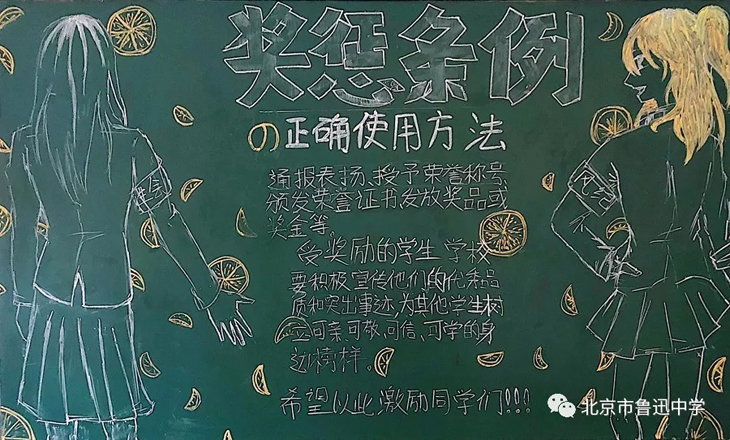 奖惩条例
の正确使用方法
通报表扬、授予荣誉称号、
颁发荣誉证书、发放奖品或
奖金等。
受奖励的学生 学校
要积极宣传他们的优秀品
质和突出事迹,为其他学生树
立可亲、可敬、可信、可学的身
边榜样。
希望以此,激励同学们!!!
北京市鲁迅中学